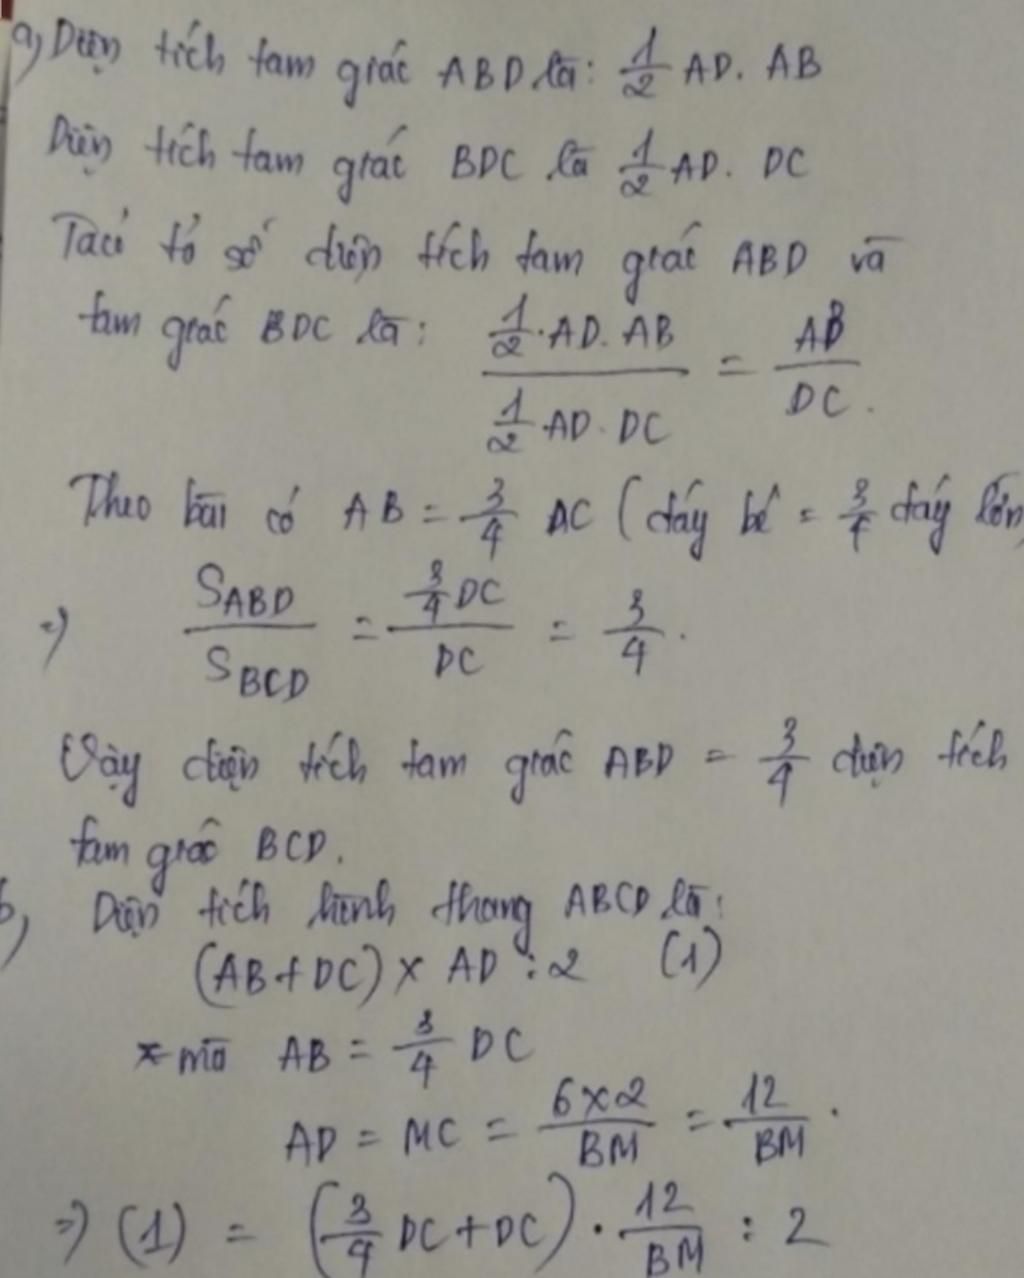 a, Diện tích tam giác ABD là: 1/2 AD. AB
Diện tích tam giác BDC là 1/2 AD. DC
Ta có tỉ số diện tích tam giác ABD và
tam giác BDC là: (1/2 . AD. AB)/(1/2 AD. DC) = AB/DC.
Theo bài có AB = 3/4 DC (đáy bé = 3/4 đáy lớn)
=> S_ABD/S_BCD = (3/4 DC)/DC = 3/4.
Vậy diện tích tam giác ABD = 3/4 diện tích
tam giác BCD.
b, Diện tích hình thang ABCD là:
(AB + DC) x AD : 2 (1)
mà AB = 3/4 DC
AD = MC = (6 x 2)/BM = 12/BM.
=> (1) = (3/4 DC + DC) . 12/BM : 2